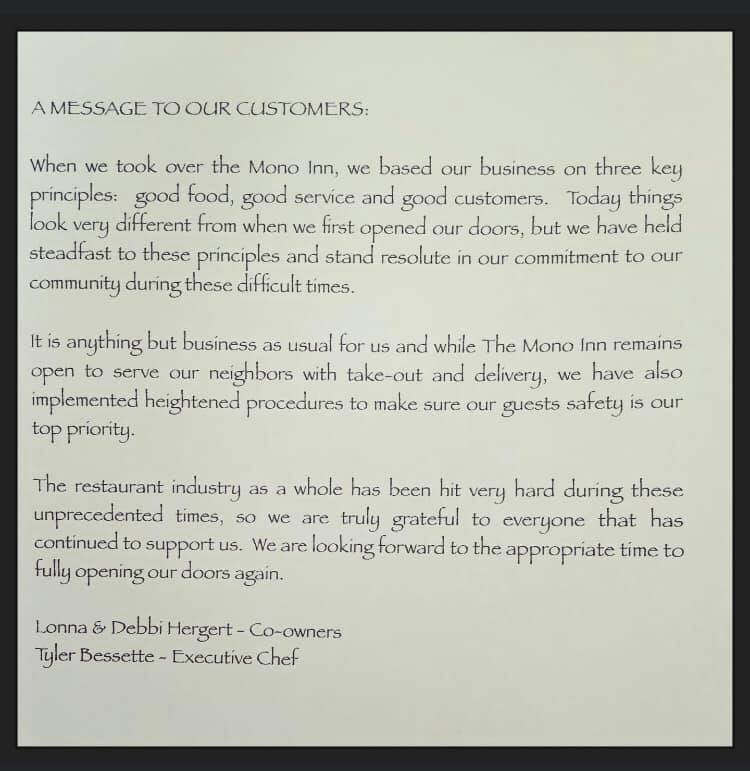 A MESSAGE TO OUR CUSTOMERS:
When we took over the Mono Inn, we based our business on three key
principles: good food, good service and good customers. Today things
look very different from when we first opened our doors, but we have held
steadfast to these principles and stand resolute in our commitment to our
community during these difficult times.
It is anything but business as usual for us and while The Mono Inn remains
open to serve our neighbors with take-out and delivery, we have also
implemented heightened procedures to make sure our guests safety is our
top priority.
The restaurant industry as a whole has been hit very hard during these
unprecedented times, so we are truly grateful to everyone that has
continued to support us. We are looking forward to the appropriate time to
fully opening our doors again.
Lonna & Debbi Hergert - Co-owners
Tyler Bessette - Executive Chef